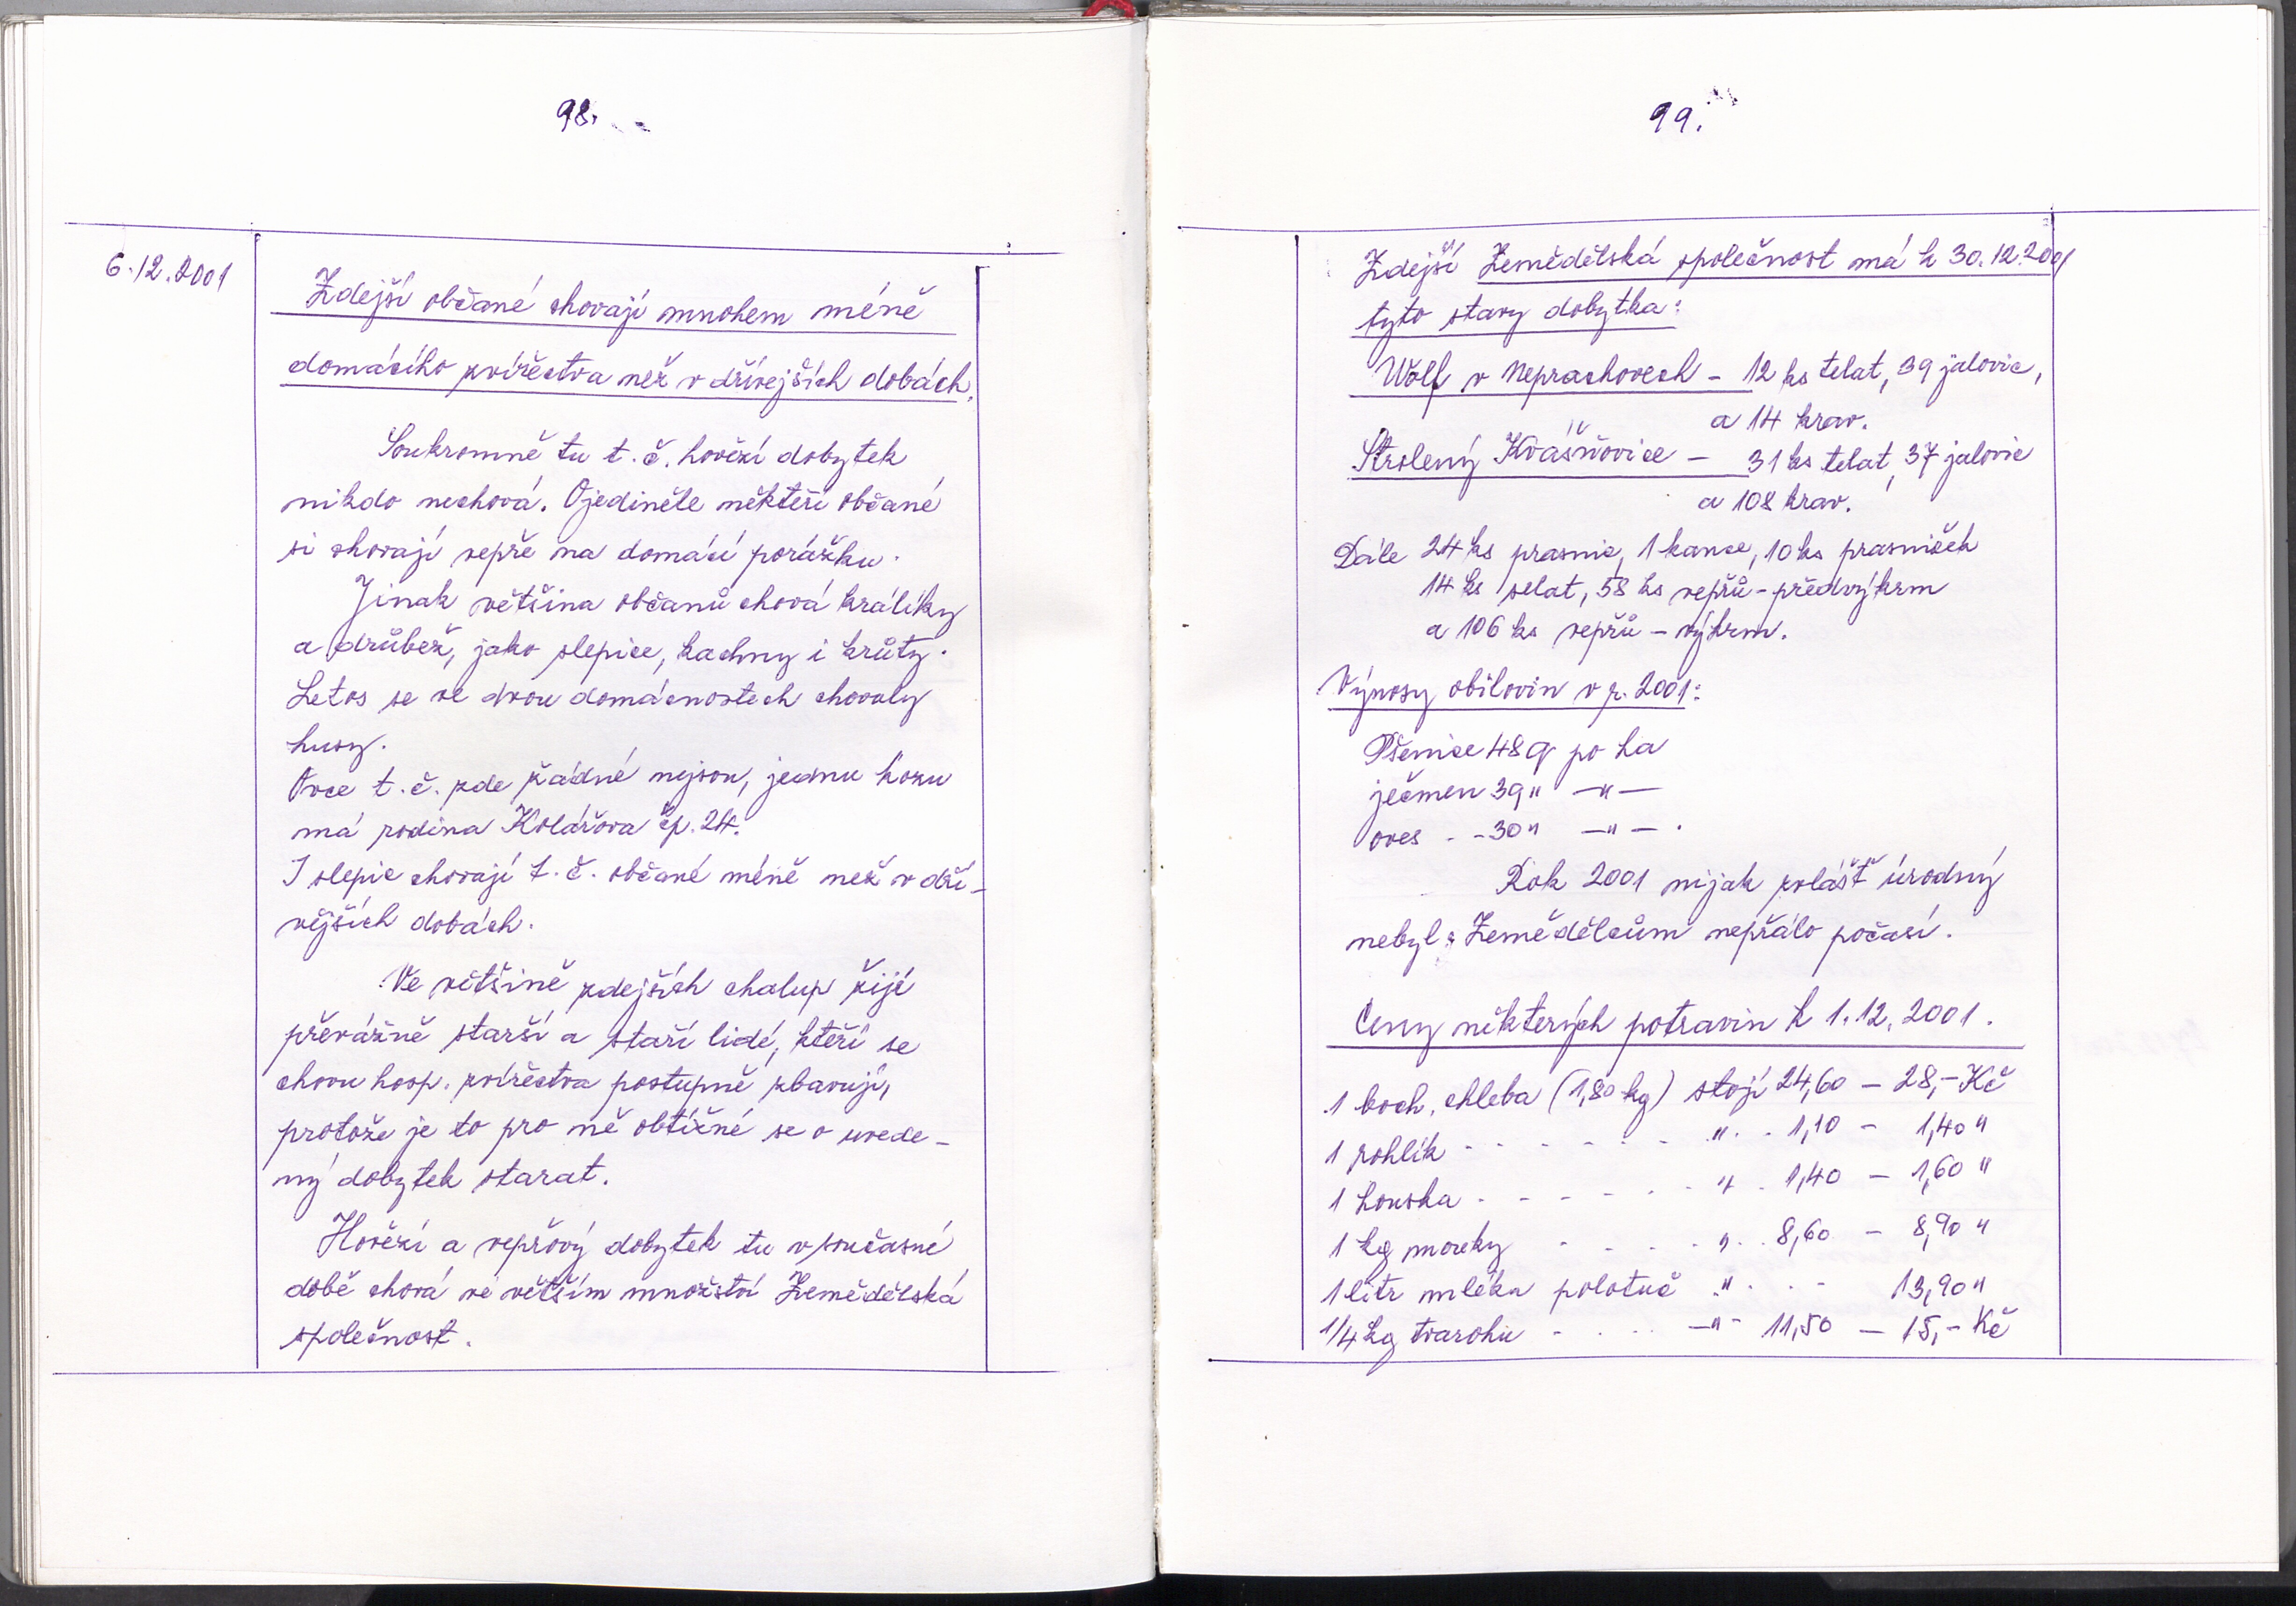 98.
6.12.2001
Zdejší občané chovají mnohem méně
domácího zvířectva než v dřívejších dobách.
Soukromně tu t.č. hovězí dobytek
nikdo nechová. Ojediněle někteří občané
si chovají vepře na domácí porážku.
Jinak většina občanů chová králíky
a drůbež, jako slepice, kachny i krůty.
Letos se ve dvou domácnostech chovaly
husy.
Ovce t.č. zde žádné nejsou, jednu kozu
má rodina Kolářova čp. 24.
I slepic chovají t.č. občané méně než v dří-
vějších dobách.
Ve většině zdejších chalup žijí
převážně starší a staří lidé, kteří se
chovu hosp. zvířectva postupně zbavují,
protože je to pro ně obtížné se o uvede-
ný dobytek starat.
Hovězí a vepřový dobytek tu v současné
době chová ve větším množství Zemědělská
společnost.
99.
Zdejší Zemědělská společnost má k 30.12.2001
tyto stavy dobytka:
Wölf v Neprachovech - 12 ks telat, 39 jalovic,
a 14 krav.
Strolený Kvášňovice - 31 ks telat, 37 jalovic
a 108 krav.
Dále 24 ks prasnic, 1 kance, 10 ks prasniček
14 ks selat, 58 ks vepřů - předvýkrm
a 106 ks vepřů - výkrm.
Výnosy obilovin v r. 2001:
Pšenice 48 q po ha
ječmen 39 " —"—
oves - - 30 " —"— .
Rok 2001 nijak zvlášť úrodný
nebyl: Zemědělcům nepřálo počasí.
Ceny některých potravin k 1.12.2001.
1 boch. chleba (1,80 kg) stojí 24,60 — 28,- Kč
1 rohlík - - - - - - " - - 1,10 - 1,40 "
1 houska - - - - - - " - 1,40 — 1,60 "
1 kg mouky - - - - - " - - 8,60 - 8,90 "
1 litr mléka polotuč " - - - 13,90 "
1/4 kg tvarohu - - - - —"- 11,50 — 15,- Kč